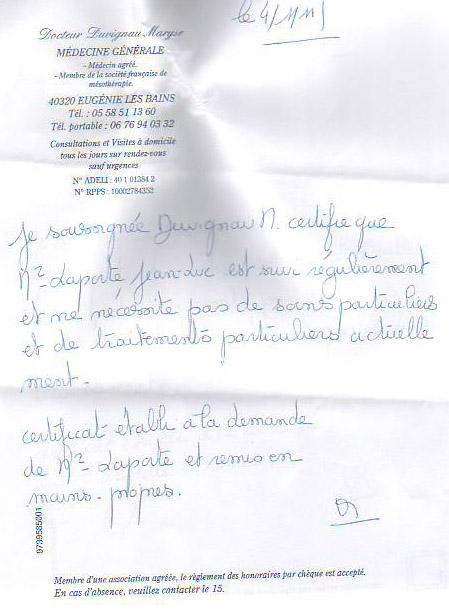 le 4/11/15
Docteur Duvignau Maryse
MÉDECINE GÉNÉRALE
- Médecin agréé.
- Membre de la société française de
mésothérapie.
40320 EUGÉNIE LES BAINS
Tél. : 05 58 51 13 60
Tél. portable : 06 76 94 03 32
Consultations et Visites à domicile
tous les jours sur rendez-vous
sauf urgences
N° ADELI : 40 1 01384 2
N° RPPS : 10002784352
Je soussignée Duvignau M. certifie que
Mr Laporte Jean-Luc est suivi régulièrement
et ne nécessite pas de soins particuliers
et de traitements particuliers actuelle
ment.
certificat établi à la demande
de Mr Laporte et remis en
mains propres.
9739585001
Membre d'une association agréée, le règlement des honoraires par chèque est accepté.
En cas d'absence, veuillez contacter le 15.